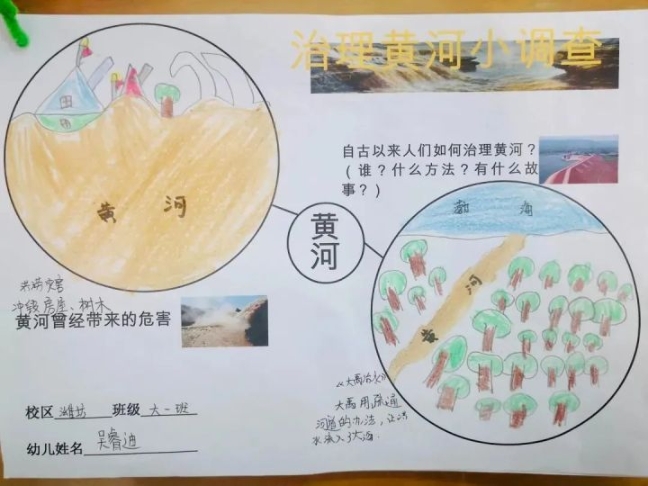 治理黄河小调查
自古以来人们如何治理黄河？
（谁？什么方法？有什么故
事？）
黄河
黄
河
渤海
黄河
冲毁房屋，树木
黄河曾经带来的危害
《大禹治水》
大禹用疏通
河道的办法，让洪
水流入了大海.
校区 潍坊 班级 大一班
幼儿姓名 吴睿迪